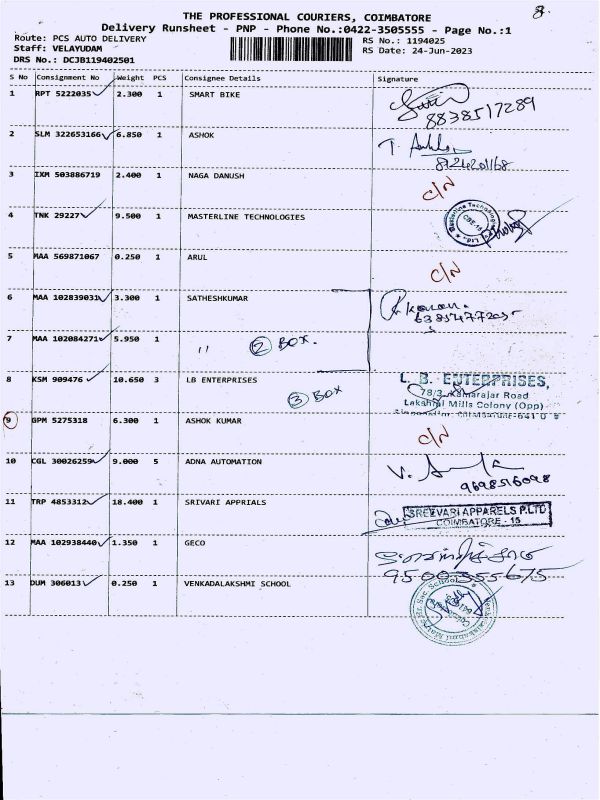 THE PROFESSIONAL COURIERS, COIMBATORE
Delivery Runsheet - PNP - Phone No.:0422-3505555 - Page No.:1
Route: PCS AUTO DELIVERY RS No.: 1194025
Staff: VELAYUDAM RS Date: 24-Jun-2023
DRS No.: DCJB119402501
S No Consignment No Weight PCS Consignee Details Signature
1 RPT 5222035 2.300 1 SMART BIKE
8838517289
2 SLM 322653166 6.850 1 ASHOK
3 IXM 503886719 2.400 1 NAGA DANUSH C/N
4 TNK 29227 9.500 1 MASTERLINE TECHNOLOGIES
5 MAA 569871067 0.250 1 ARUL C/N
6 MAA 102839031 3.300 1 SATHESHKUMAR
7 MAA 102084271 5.950 1 " 2 BOX.
8 KSM 909476 10.650 3 LB ENTERPRISES 3 BOX
L. B. ENTERPRISES,
78/3, Kamarajar Road
Lakshmi Mills Colony (Opp)
9 GPM 5275318 6.300 1 ASHOK KUMAR C/N
10 CGL 30026259 9.000 5 ADNA AUTOMATION
9698516098
11 TRP 4853312 18.400 1 SRIVARI APPRIALS
SREEVARI APPARELS P.LTD
COIMBATORE - 15
12 MAA 102938440 1.350 1 GECO
9500355675
13 DUM 306013 0.250 1 VENKADALAKSHMI SCHOOL